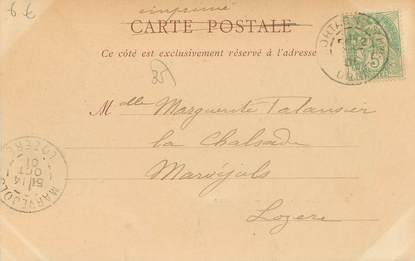 6 €
imprimé
CARTE POSTALE
Ce côté est exclusivement réservé à l'adresse
35
5
Mdlle Marguerite Palansier
la Chalsade
Marvéjols
Lozere
MARVEJOLS
14
OCT
01
LOZERE